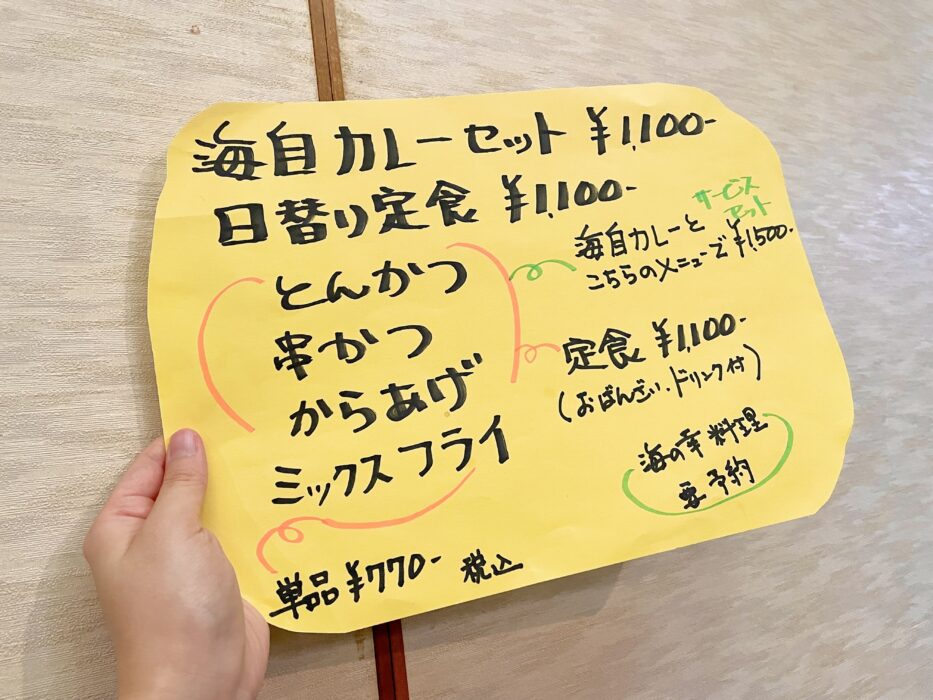 海自カレーセット ¥1,100-
日替り定食 ¥1,100-
とんかつ
串かつ
からあげ
ミックスフライ
単品 ¥770- 税込
サービス
セット
海自カレーと
こちらのメニューで ¥1,500-
定食 ¥1,100-
(おばんざい・ドリンク付)
海の幸料理
要予約